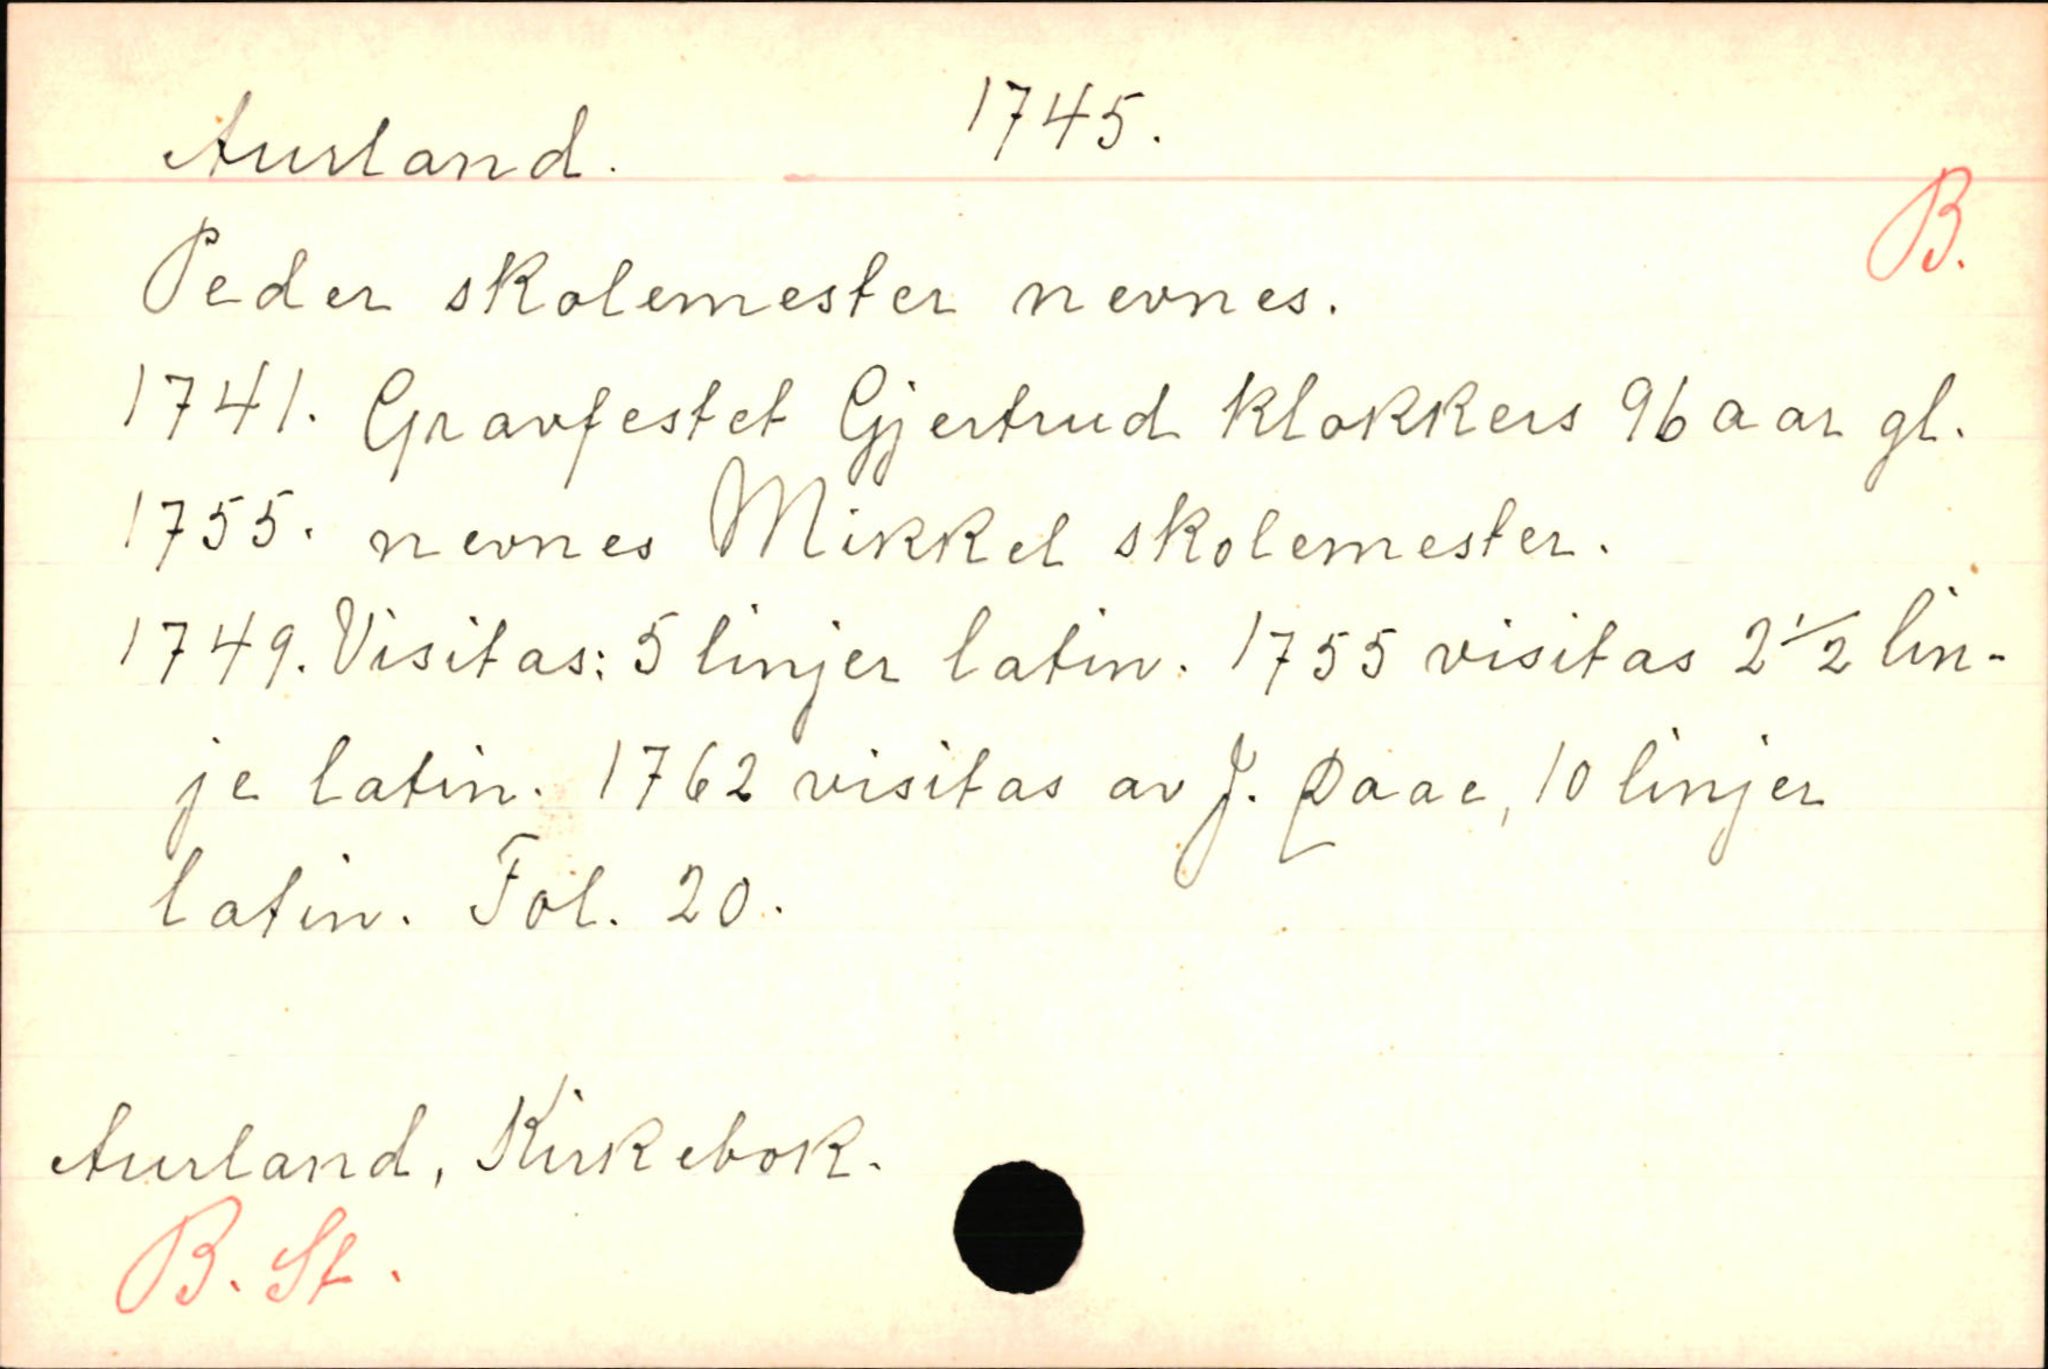 Aurland. 1745.
B.
Peder skolemester nevnes.
1741. Gravfestet Gjertrud klokkers 96 aar gl.
1755. nevnes Mikkel skolemester.
1749. Visitas: 5 linjer latin. 1755 visitas 2 1/2 lin-
je latin. 1762 visitas av J. Daae, 10 linjer
latin. Fol. 20.
Aurland, Kirkebok.
B. St.